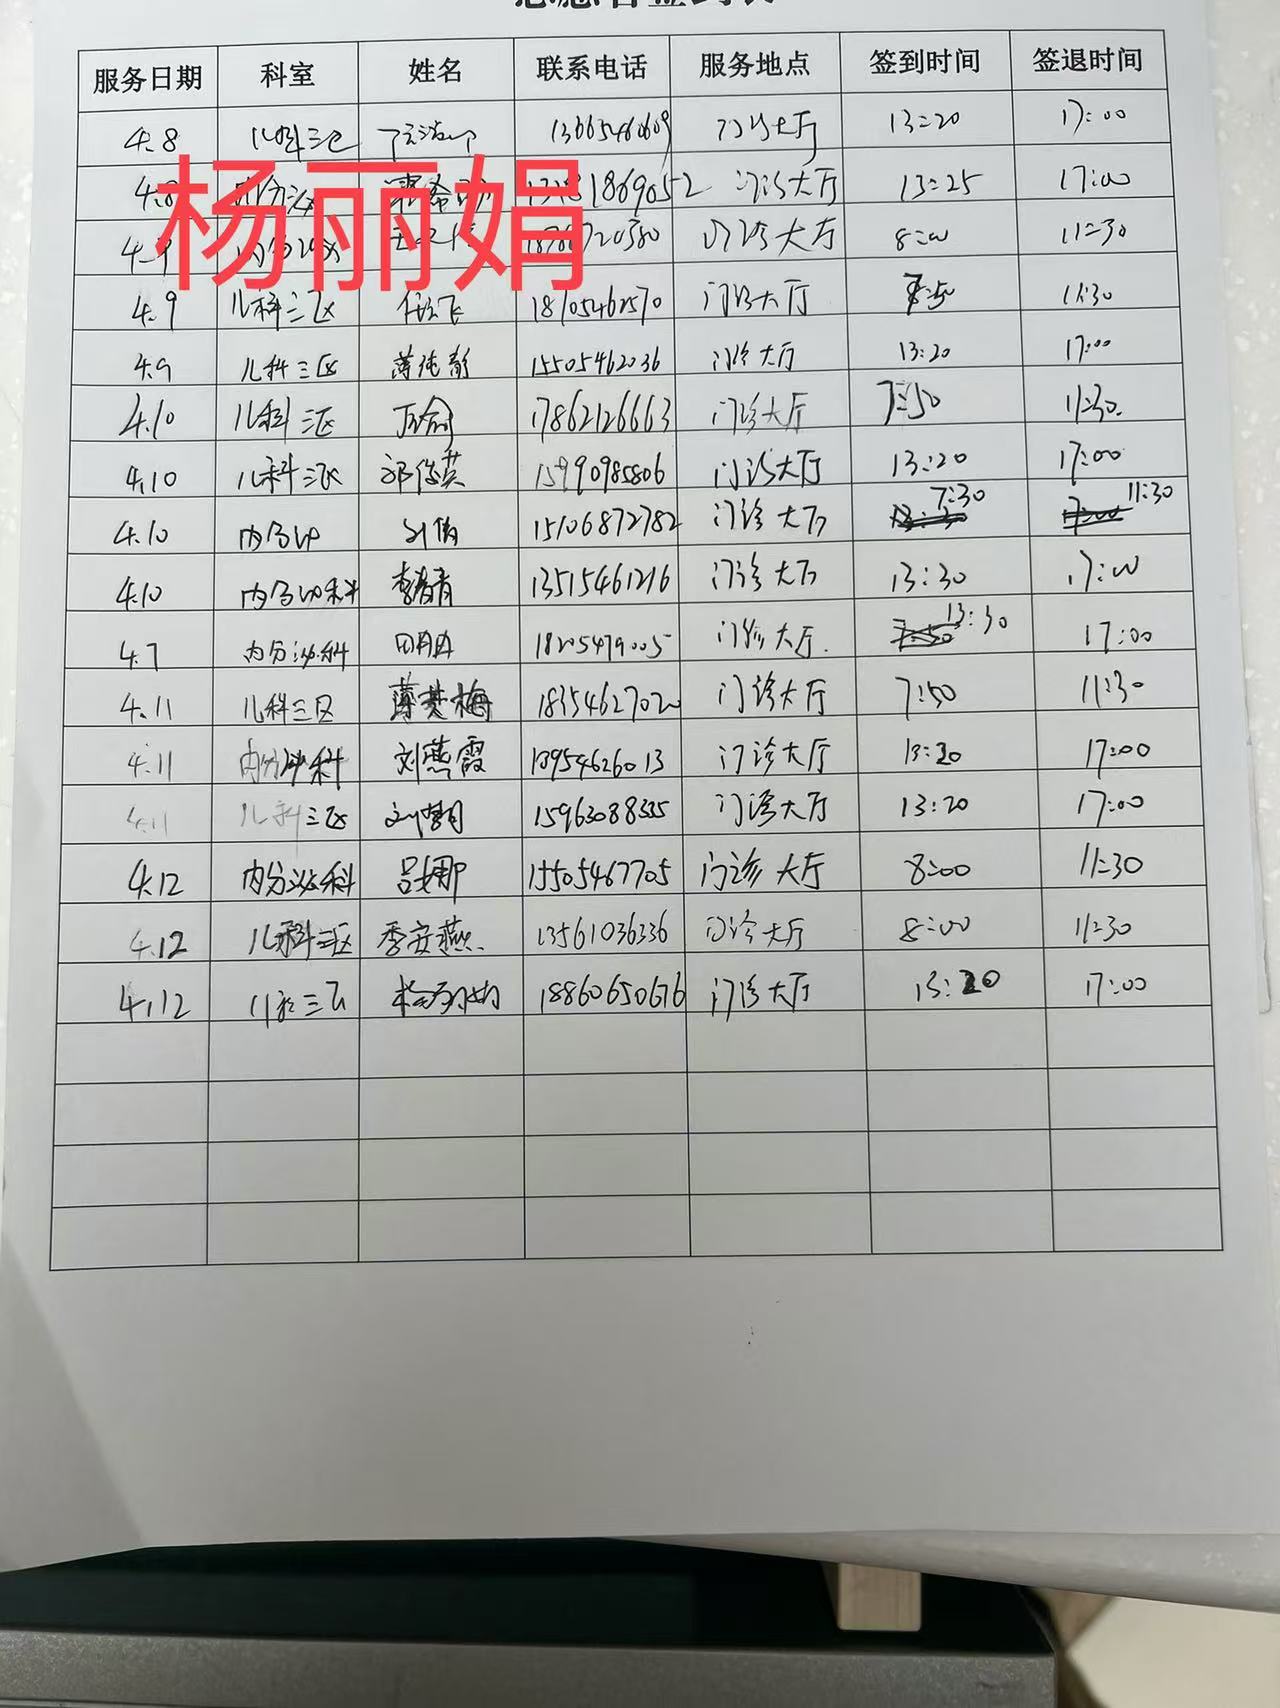 服务日期 科室 姓名 联系电话 服务地点 签到时间 签退时间
4.8 儿科三区 13665460609 门诊大厅 13:20 17:00
4.8 内分泌 门诊大厅 13:25 17:00
杨丽娟
4.9 门诊大厅 8:00 11:30
4.9 儿科三区 18105462570 门诊大厅 7:50 11:30
4.9 儿科三区 薄纯彰 15505462036 门诊大厅 13:20 17:00
4.10 儿科三区 17862126663 门诊大厅 7:50 11:30.
4.10 儿科三区 郭俊英 15990985806 门诊大厅 13:20 17:00
4.10 内分泌 刘倩 15106872782 门诊大厅 7:30 11:30
4.10 内分泌科 李青青 13515461216 门诊大厅 13:30 17:00
4.7 内分泌科 18205479005 门诊大厅. 13:30 17:00
4.11 儿科三区 薄其梅 18354627020 门诊大厅 7:50 11:30
4.11 内分泌科 刘燕霞 13954626013 门诊大厅 13:20 17:00
4.11 儿科三区 15963088335 门诊大厅 13:20 17:00
4.12 内分泌科 吕娜 15505467705 门诊大厅 8:00 11:30
4.12 儿科三区 季安燕 13561036336 门诊大厅 8:00 11:30
4.12 儿科三区 杨丽娟 18860650676 门诊大厅 13:20 17:00